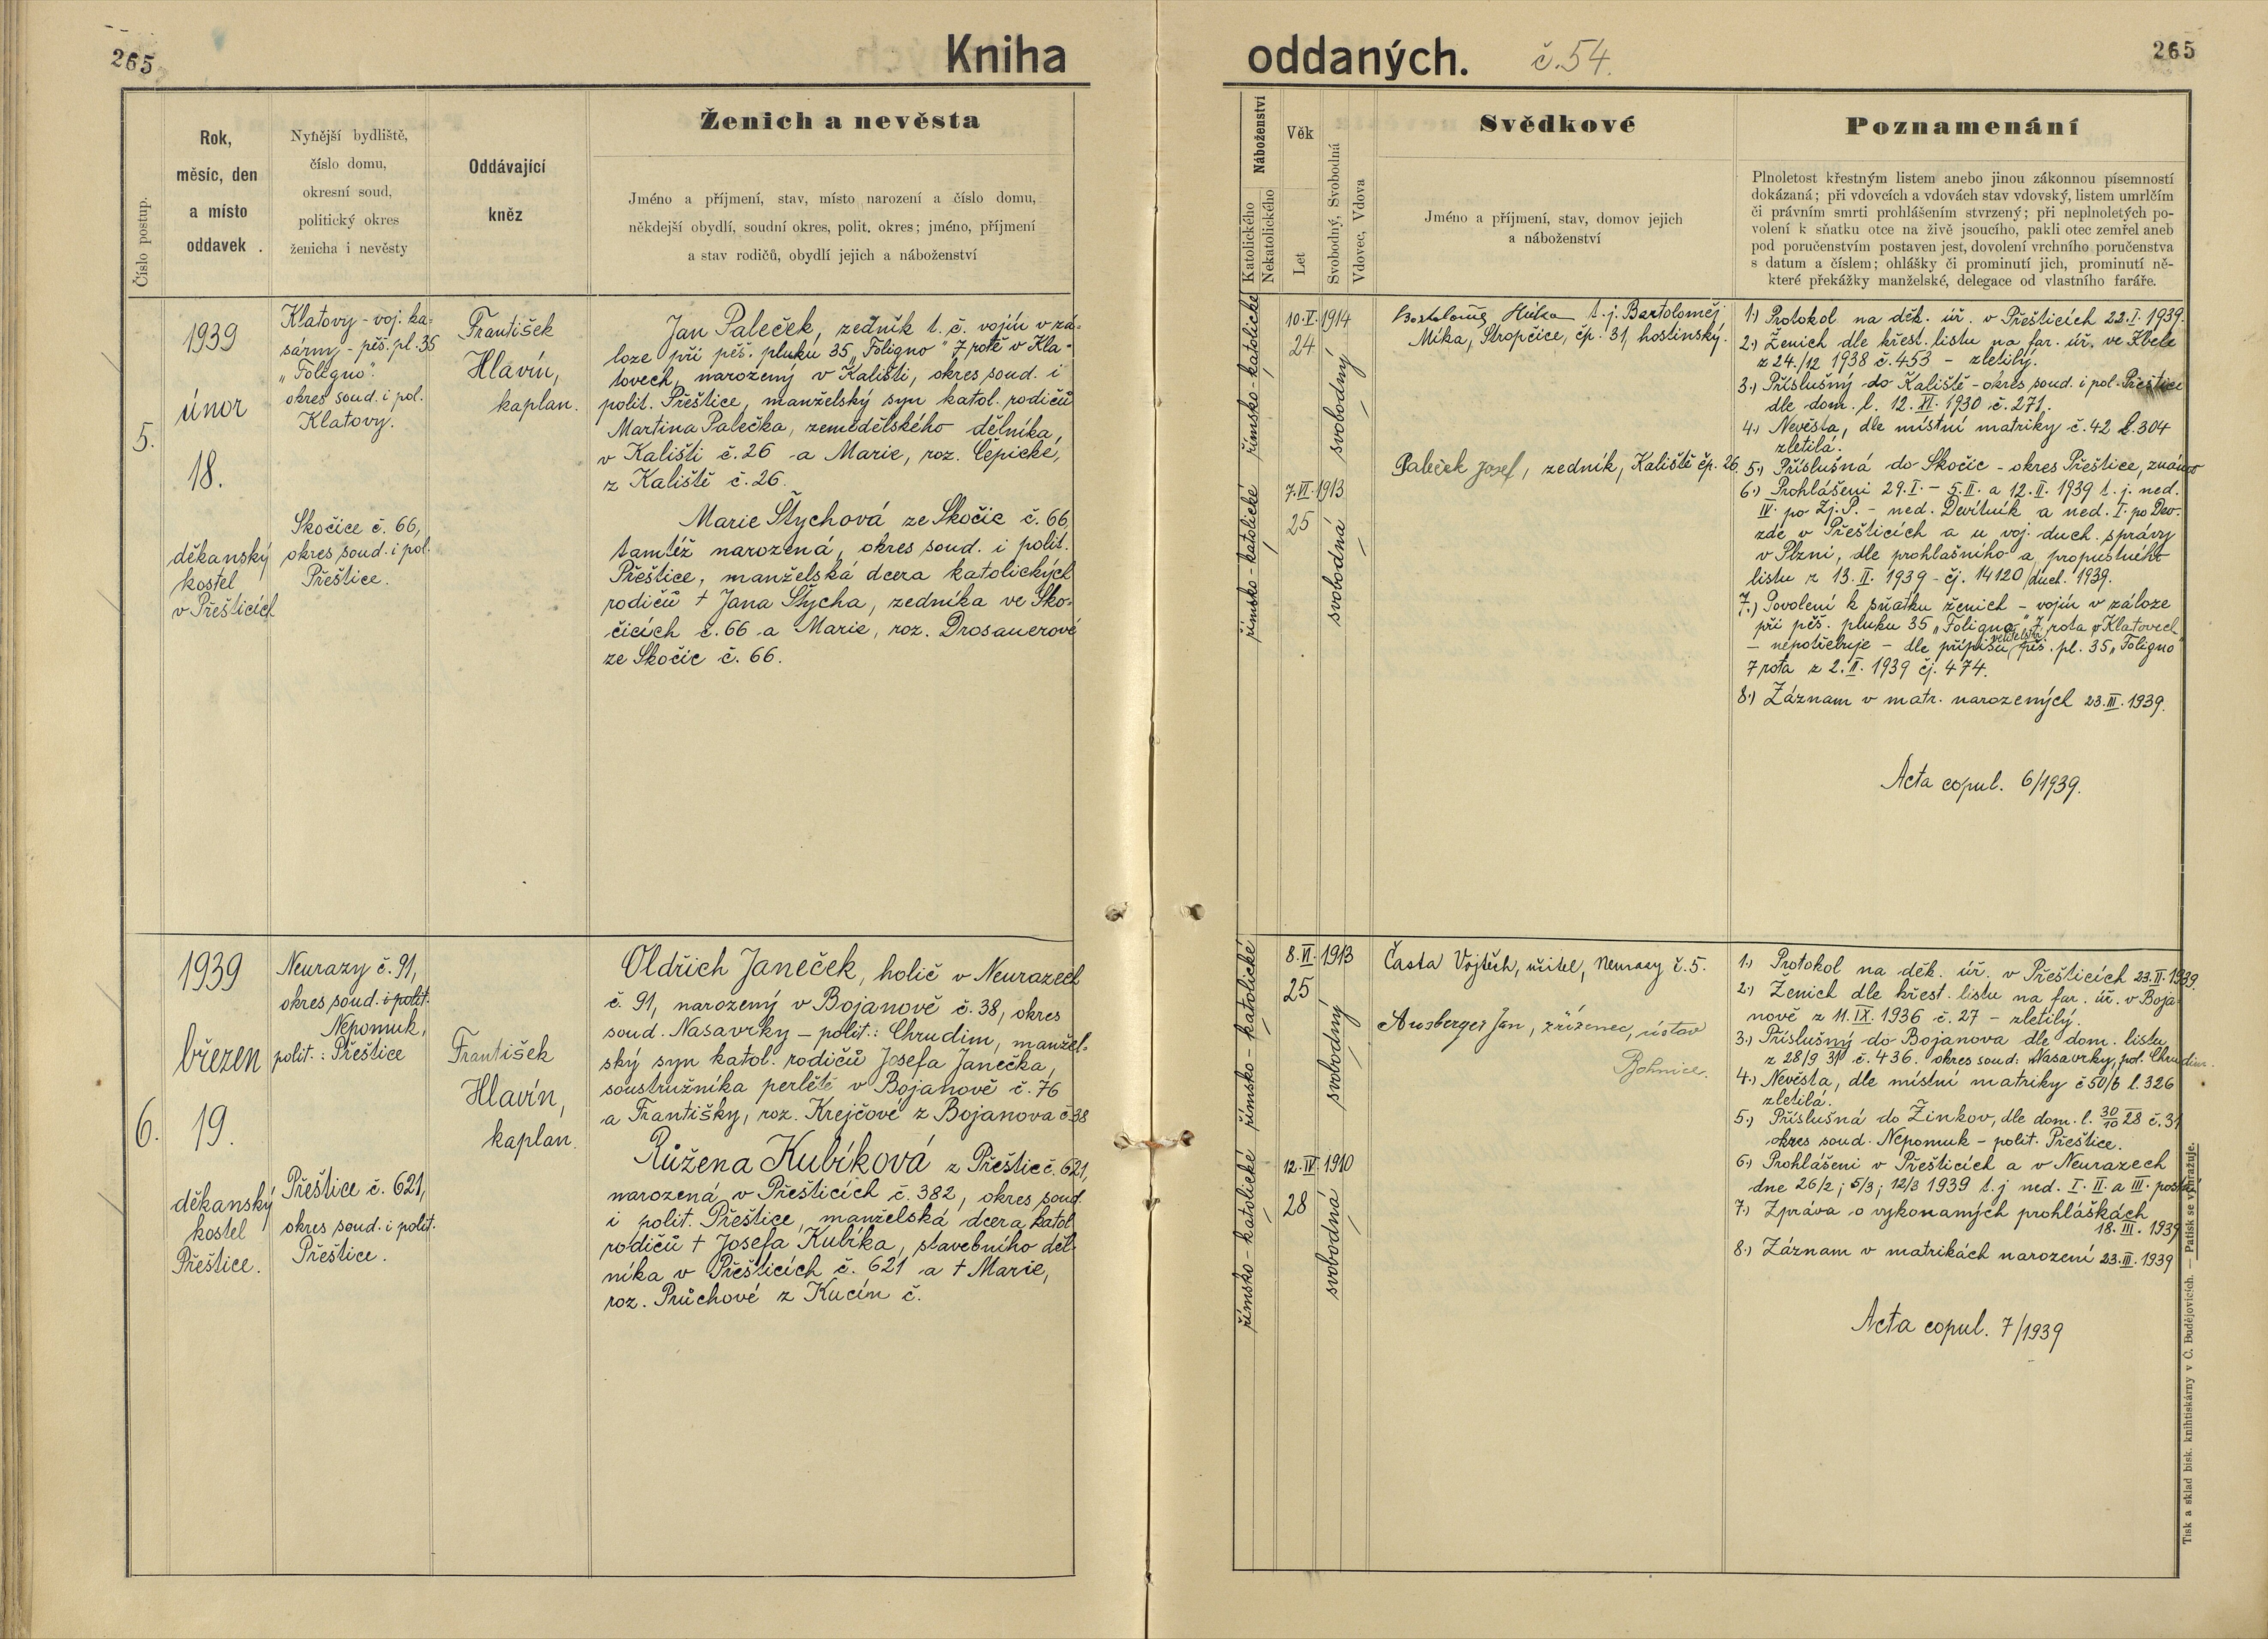 265
Kniha
oddaných.
č. 54.
265
Číslo postup.
Rok,
měsíc, den
a místo
oddavek .
Nynější bydliště,
číslo domu,
okresní soud,
politický okres
ženicha i nevěsty
Oddávající
kněz
Ženich a nevěsta
Jméno a příjmení, stav, místo narození a číslo domu,
někdejší obydlí, soudní okres, polit. okres; jméno, příjmení
a stav rodičů, obydlí jejich a náboženství
Náboženství
Katolického
Nekatolického
Věk
Let
Svobodný, Svobodná
Vdovec, Vdova
Svědkové
Jméno a příjmení, stav, domov jejich
a náboženství
Poznamenání
Plnoletost křestným listem anebo jinou zákonnou písemností
dokázaná; při vdovcích a vdovách stav vdovský, listem umrlčím
či právním smrti prohlášením stvrzený; při neplnoletých po-
volení k sňatku otce na živě jsoucího, pakli otec zemřel aneb
pod poručenstvím postaven jest, dovolení vrchního poručenstva
s datum a číslem; ohlášky či prominutí jich, prominutí ně-
které překážky manželské, delegace od vlastního faráře.
5.
1939
únor
18.
děkanský
kostel
v Přešticích
Klatovy - voj. ka-
sárny - pěš. pl. 35
„Foligno".
okres soud. i pol.
Klatovy.
Skočice č. 66,
okres soud. i pol.
Přeštice.
František
Hlavín,
kaplan.
Jan Paleček, zedník t. č. vojín v zá-
loze při pěš. pluku 35 „Foligno" 7 rotě v Kla-
tovech, narozený v Kališti, okres soud. i
polit. Přeštice, manželský syn katol. rodičů
Martina Palečka, zemědělského dělníka,
v Kališti č. 26 a Marie, roz. Čepické,
z Kaliště č. 26.
Marie Štychová ze Skočic č. 66,
tamtéž narozená, okres soud. i polit.
Přeštice, manželská dcera katolických
rodičů † Jana Štycha, zedníka ve Sko-
čicích č. 66 a Marie, roz. Drosauerové
ze Skočic č. 66.
římsko-katolické
římsko-katolické
10. V. 1914
24
svobodný
7. VI. 1913
25
svobodná
t. j. Bartoloměj
Míka, Stropčice, čp. 31, hostinský.
Paleček Josef, zedník, Kaliště čp. 26.
1.) Protokol na děk. úř. v Přešticích 22. I. 1939.
2.) Ženich dle křest. listu na far. úř. ve Kbele
z 24./12 1938 č. 453 - zletilý.
3.) Příslušný do Kaliště - okres soud. i pol. Přeštice
dle dom. l. 12. XI. 1930 č. 271.
4.) Nevěsta, dle místní matriky č. 42 l. 304
zletilá.
5.) Příslušná do Skočic - okres Přeštice,
6.) Prohlášeni 29. I. - 5. II. a 12. II. 1939 t. j. ned.
IV. po Zj. P. - ned. Devítník a ned. I. po Dev.
zde v Přešticích a u voj. duch. správy
v Plzni, dle prohlašního a propustného
listu z 13. II. 1939 - čj. 14120/duch. 1939.
7.) Povolení k sňatku ženich - vojín v záloze
při pěš. pluku 35 „Foligno" 7 rota v Klatovech
- nepotřebuje - dle přípisu velitelství pěš. pl. 35 „Foligno"
7 rota z 2. II. 1939 čj. 474.
8.) Záznam v matr. narozených 23. III. 1939.
Acta copul. 6/1939.
6.
1939
březen
19.
děkanský
kostel
Přeštice.
Neurazy č. 91,
okres soud. i polit.
Nepomuk,
polit.: Přeštice
Přeštice č. 621,
okres soud. i polit.
Přeštice.
František
Hlavín,
kaplan.
Oldřich Janeček, holič v Neurazech
č. 91, narozený v Bojanově č. 38, okres
soud. Nasavrky - polit.: Chrudim, manžel-
ský syn katol. rodičů Josefa Janečka,
soustružníka perletě v Bojanově č. 76
a Františky, roz. Krejčové z Bojanova č. 38
Růžena Kubíková z Přeštic č. 621,
narozená v Přešticích č. 382, okres soud.
i polit. Přeštice, manželská dcera katol.
rodičů † Josefa Kubíka, stavebního děl-
níka v Přešticích č. 621 a † Marie,
roz. Průchové z Kucín č.
římsko-katolické
římsko-katolické
8. VI. 1913
25
svobodný
12. IV. 1910
28
svobodná
Časta Vojtěch, učitel, Neurazy č. 5.
Ausberger Jan, zřízenec, ústav
Bohnice.
1.) Protokol na děk. úř. v Přešticích 23. II. 1939.
2.) Ženich dle křest. listu na far. úř. v Boja-
nově z 11. IX. 1936 č. 27 - zletilý.
3.) Příslušný do Bojanova dle dom. listu
z 28/9 31 č. 436. okres soud: Nasavrky, pol. Chrudim.
4.) Nevěsta, dle místní matriky č 50/b l. 326
zletilá.
5.) Příslušná do Žinkov, dle dom. l. 30/10 28 č. 31
okres soud. Nepomuk - polit. Přeštice.
6.) Prohlášeni v Přešticích a v Neurazech
dne 26/2; 5/3; 12/3 1939 t. j ned. I. II. a III. postní
7.) Zpráva o vykonaných prohláškách
18. III. 1939
8.) Záznam v matrikách narození 23. III. 1939
Acta copul. 7/1939
Tisk a sklad bisk. knihtiskárny v Č. Budějovicích. — Patisk se vyhražuje.